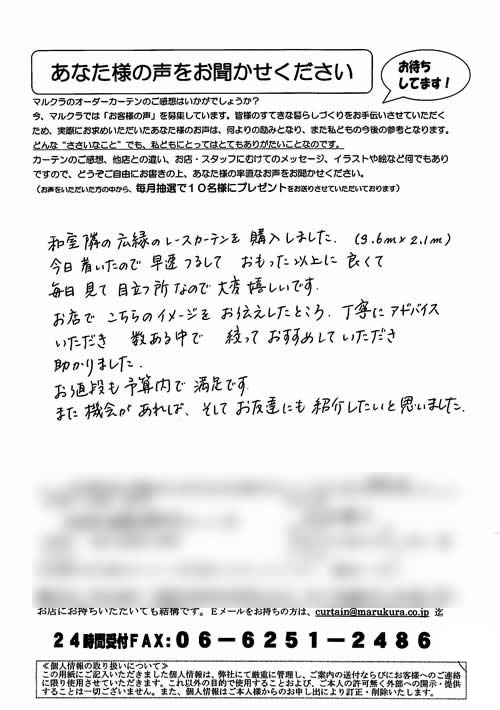 あなた様の声をお聞かせください
お待ち
してます！
マルクラのオーダーカーテンのご感想はいかがでしょうか？
今、マルクラでは「お客様の声」を募集しています。皆様のすてきな暮らしづくりをお手伝いさせていただく
ため、実際にお求めいただいたあなた様のお声は、何よりの励みとなり、また私どもの今後の参考となります。
どんな“ささいなこと”でも、私どもにとってはとてもありがたいことなのです。
カーテンのご感想、他店との違い、お店・スタッフにむけてのメッセージ、イラストや絵など何でもあり
ですので、どうぞご自由にお書きの上、あなた様の率直なお声をお聞かせください。
（お声をいただいた方の中から、毎月抽選で１０名様にプレゼントをお送りさせていただいております）
和室隣の広縁のレースカーテンを購入しました。(3.6m×2.1m)
今日着いたので早速つるして おもった以上に良くて
毎日見て目立つ所なので大変嬉しいです。
お店でこちらのイメージをお伝えしたところ、丁寧にアドバイス
いただき 数ある中で 絞っておすすめしていただき
助かりました。
お値段も予算内で満足です。
また機会があれば、そしてお友達にも紹介したいと思いました。
お店にお持ちいただいても結構です。Ｅメールをお持ちの方は、curtain@marukura.co.jp 迄
２４時間受付ＦＡＸ：０６－６２５１－２４８６
≪個人情報の取り扱いについて≫
この用紙にご記入いただきました個人情報は、弊社にて厳重に管理し、ご案内の送付ならびにお客様へのご連絡
に限り使用させていただきます。これ以外の目的で使用することおよび、ご本人の許可無く外部への開示・提供
することは一切ございません。また、個人情報はご本人様からのお申し出により訂正・削除いたします。